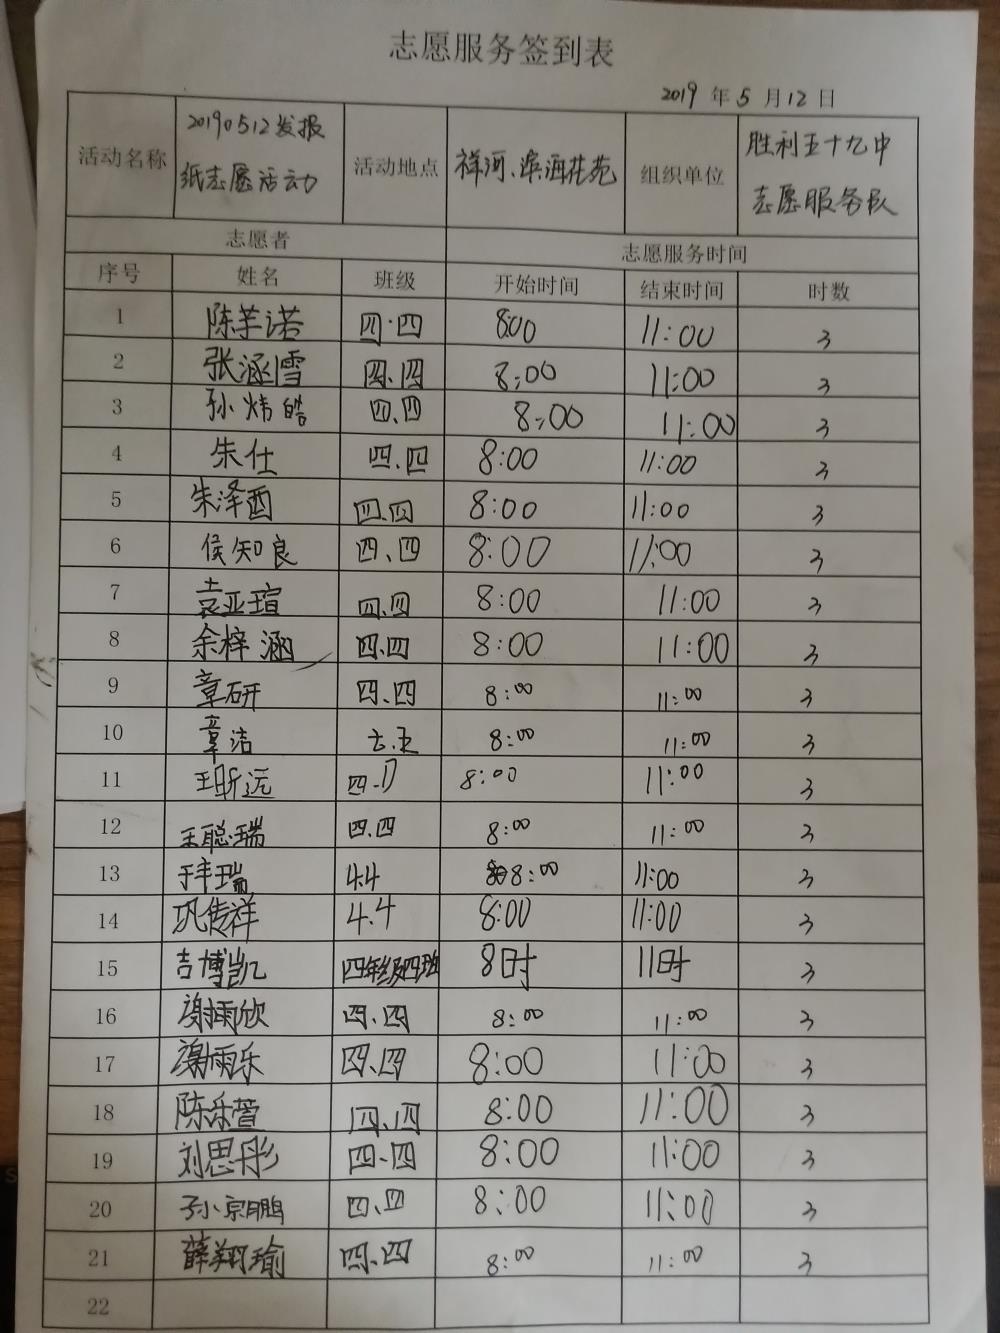 志愿服务签到表
2019 年 5 月 12 日
活动名称 20190512发报纸志愿活动 活动地点 祥河、滨海花苑 组织单位 胜利五十九中志愿服务队
志愿者 志愿服务时间
序号 姓名 班级 开始时间 结束时间 时数
1 陈芊诺 四·四 8:00 11:00 3
2 张涵雪 四.四 8:00 11:00 3
3 孙炜皓 四.四 8:00 11:00 3
4 朱仕 四.四 8:00 11:00 3
5 朱泽酉 四.四 8:00 11:00 3
6 侯知良 四、四 8:00 11:00 3
7 袁亚瑄 四.四 8:00 11:00 3
8 余梓涵 四.四 8:00 11:00 3
9 章研 四.四 8:00 11:00 3
10 章洁 8:00 11:00 3
11 王昕远 8:00 11:00 3
12 王聪瑞 四.四 8:00 11:00 3
13 于丰瑞 4.4 8:00 11:00 3
14 巩传祥 4.4 8:00 11:00 3
15 吉博凯 四年级四班 8时 11时 3
16 谢雨欣 四、四 8:00 11:00 3
17 谢雨乐 四、四 8:00 11:00 3
18 陈乐萱 四、四 8:00 11:00 3
19 刘思彤 四、四 8:00 11:00 3
20 孙宗鹏 四、四 8:00 11:00 3
21 薛翔瑜 四、四 8:00 11:00 3
22